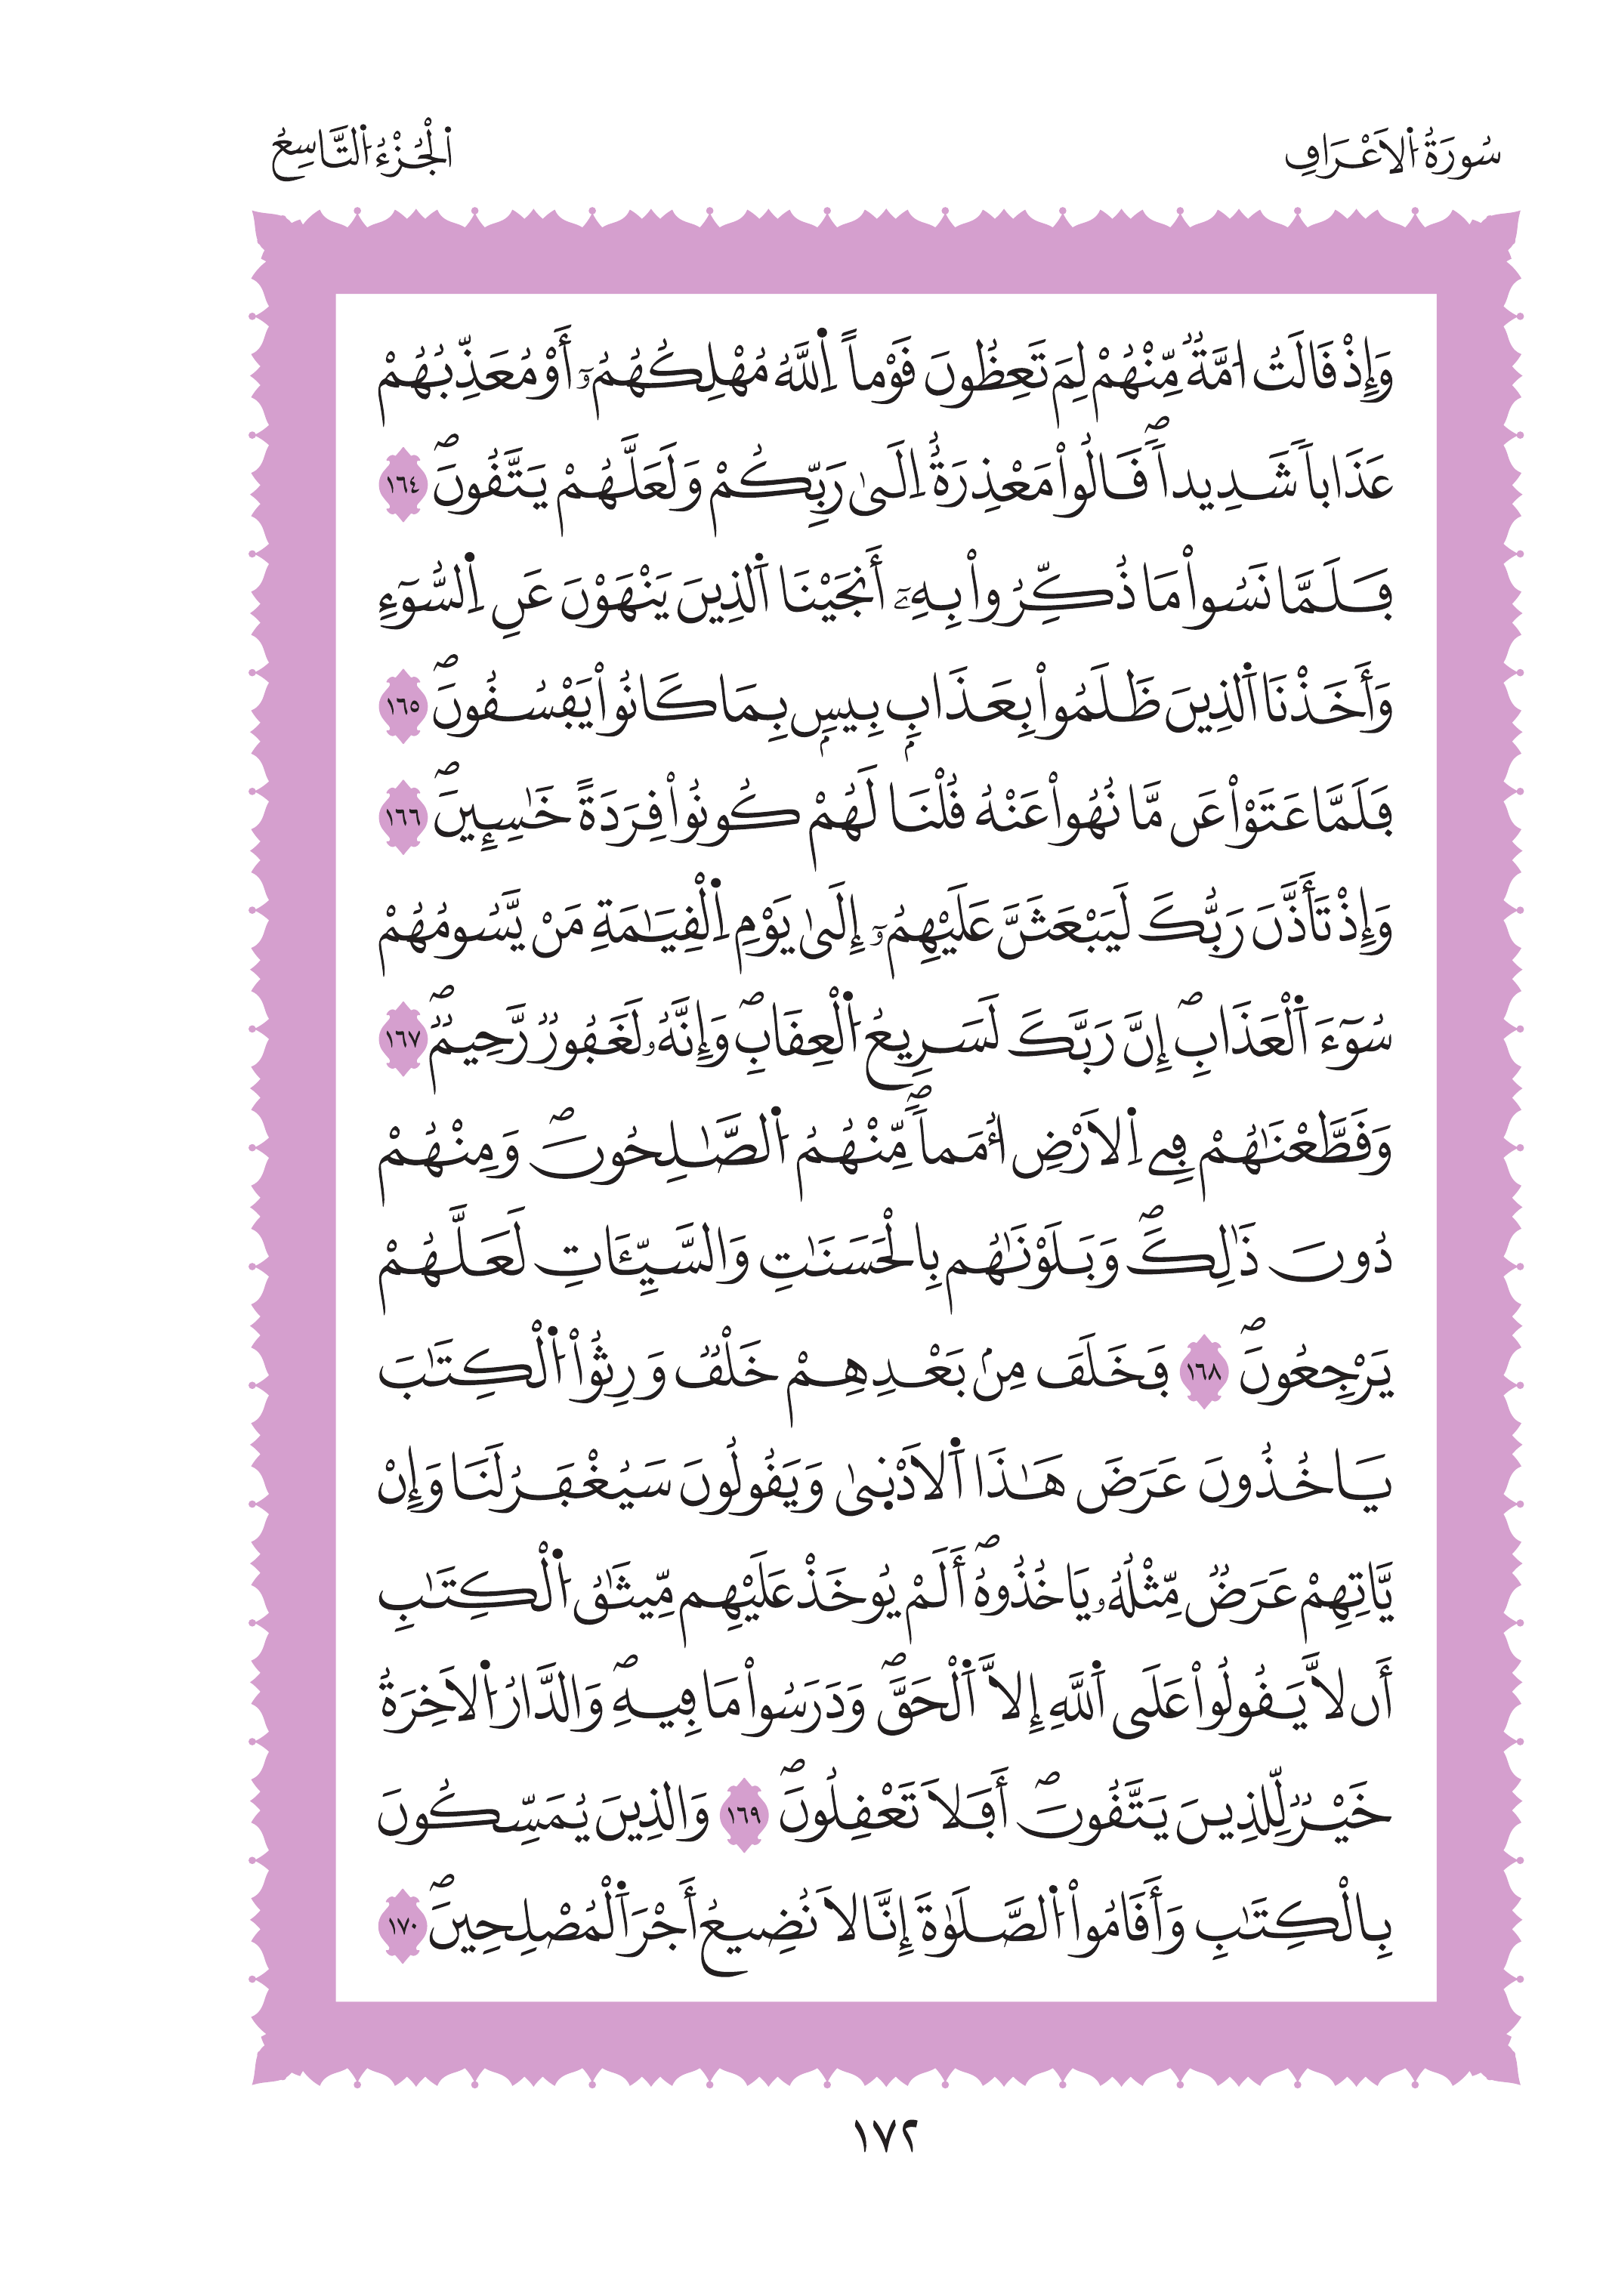 سُورَةُ اُ۬لَاعْرَافِ
اُ۬لْجُزْءُ اُ۬لتَّاسِعُ
وَإِذْ قَالَتُ ا۟مَّةٞ مِّنْهُمْ لِمَ تَعِظُونَ قَوْماً اِ۬للَّهُ مُهْلِكُهُمُۥٓ أَوْ مُعَذِّبُهُمْ
عَذَاباٗ شَدِيداٗۖ قَالُواْ مَعْذِرَةٌ اِلَىٰ رَبِّكُمْ وَلَعَلَّهُمْ يَتَّقُونَۖ ١٦٤
فَلَمَّا نَسُواْ مَا ذُكِّرُواْ بِهِۦٓ أَنجَيْنَا اَ۬لذِينَ يَنْهَوْنَ عَنِ اِ۬لسُّوٓءِ
وَأَخَذْنَا اَ۬لذِينَ ظَلَمُواْ بِعَذَابِۢ بِيسِۢ بِمَا كَانُواْ يَفْسُقُونَۖ ١٦٥
فَلَمَّا عَتَوْاْ عَن مَّا نُهُواْ عَنْهُ قُلْنَا لَهُمْ كُونُواْ قِرَدَةً خَٰسِـِٕينَۖ ١٦٦
وَإِذْ تَأَذَّنَ رَبُّكَ لَيَبْعَثَنَّ عَلَيْهِمُۥٓ إِلَىٰ يَوْمِ اِ۬لْقِيَٰمَةِ مَنْ يَّسُومُهُمْ
سُوٓءَ اَ۬لْعَذَابِۖ إِنَّ رَبَّكَ لَسَرِيعُ اُ۬لْعِقَابِۖ وَإِنَّهُۥ لَغَفُورٞ رَّحِيمٞۖ ١٦٧
وَقَطَّعْنَٰهُمْ فِے اِ۬لَارْضِ أُمَماٗۖ مِّنْهُمُ اُ۬لصَّٰلِحُونَۖ وَمِنْهُمْ
دُونَ ذَٰلِكَۖ وَبَلَوْنَٰهُم بِالْحَسَنَٰتِ وَالسَّيِّـَٔاتِ لَعَلَّهُمْ
يَرْجِعُونَۖ ١٦٨ فَخَلَفَ مِنۢ بَعْدِهِمْ خَلْفٞ وَرِثُواْ اُ۬لْكِتَٰبَ
يَاخُذُونَ عَرَضَ هَٰذَا اَ۬لَادْنۭيٰ وَيَقُولُونَ سَيُغْفَرُ لَنَا وَإِنْ
يَّاتِهِمْ عَرَضٞ مِّثْلُهُۥ يَاخُذُوهُۖ أَلَمْ يُوخَذْ عَلَيْهِم مِّيثَٰقُ اُ۬لْكِتَٰبِ
أَن لَّا يَقُولُواْ عَلَى اَ۬للَّهِ إِلَّا اَ۬لْحَقَّۖ وَدَرَسُواْ مَا فِيهِۖ وَالدَّارُ اُ۬لَاخِرَةُ
خَيْرٞ لِّلذِينَ يَتَّقُونَۖ أَفَلَا تَعْقِلُونَۖ ١٦٩ وَالذِينَ يُمَسِّكُونَ
بِالْكِتَٰبِ وَأَقَامُواْ اُ۬لصَّلَوٰةَ إِنَّا لَا نُضِيعُ أَجْرَ اَ۬لْمُصْلِحِينَۖ ١٧٠
١٧٢